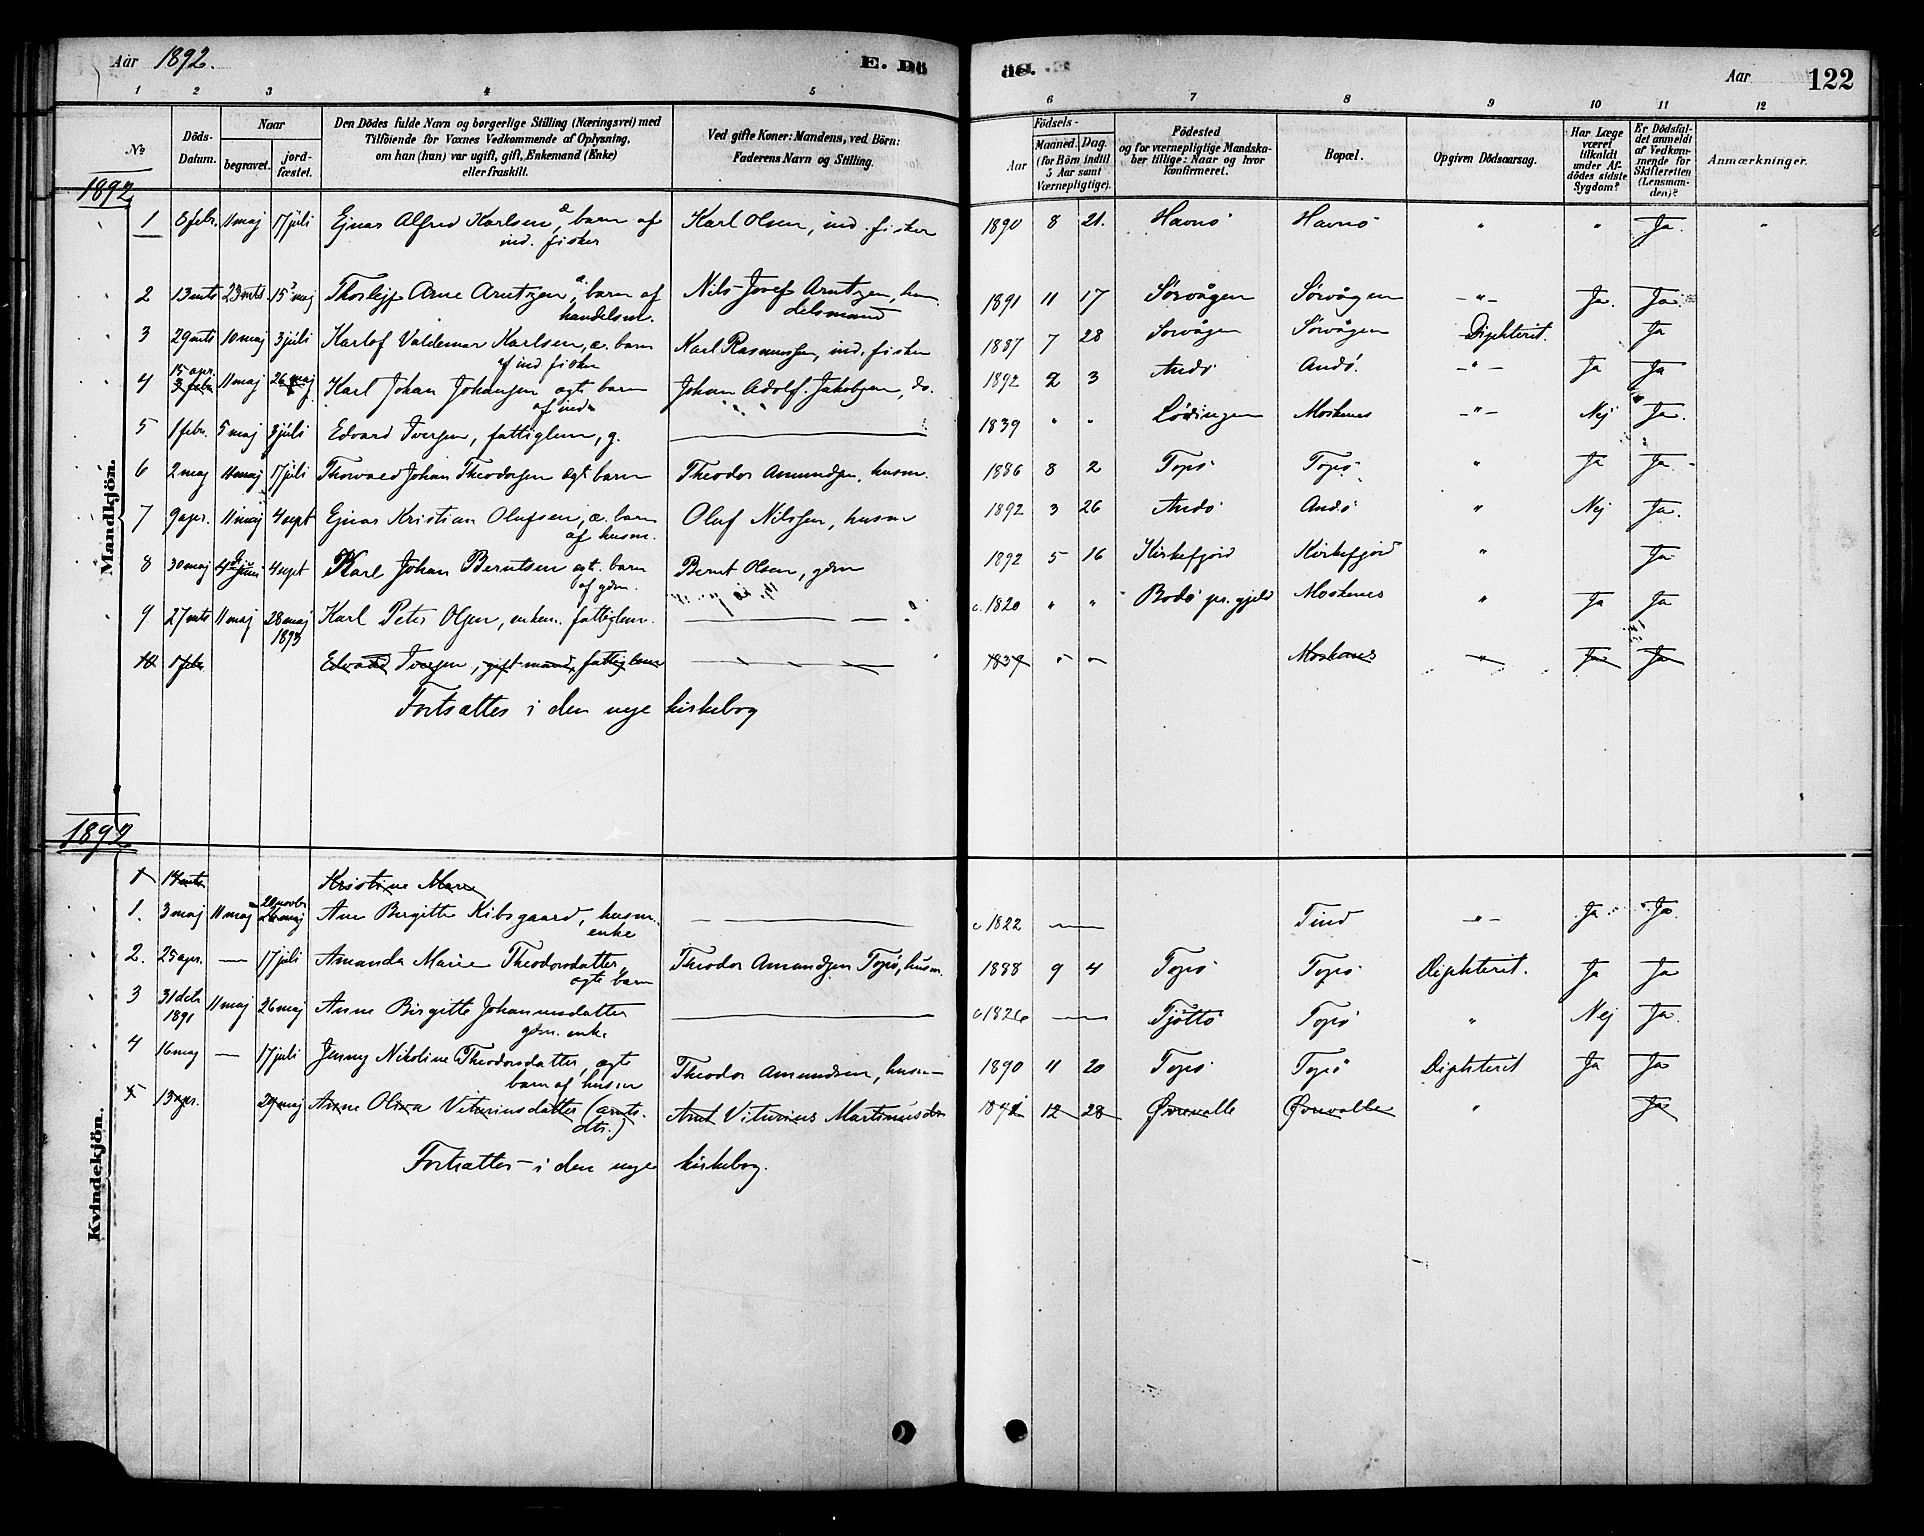 Aar 1892.
E. Dö
dö. E.
Aar
122
1 2 3 4 5 6 7 8 9 10 11 12
No
Döds-
Datum.
Naar
begravet.
jord-
fæstet.
Den Dödes fulde Navn og borgerlige Stilling (Næringsvei) med
Tilföiende for Voxnes Vedkommende af Oplysning,
om han (hun) var ugift, gift, Enkemand (Enke)
eller fraskilt.
Ved gifte Koner: Mandens, ved Börn:
Faderens Navn og Stilling.
Födsels-
Aar
Maaned. Dag.
(for Börn indtil
5 Aar samt
Værnepligtige).
Födested
og for værnepligtige Mandska-
ber tillige: Naar og hvor
konfirmeret.
Bopæl.
Opgiven Dödsaarsag.
Har Læge
været
tilkaldt
under Af-
dödes sidste
Sygdom?
Er Dödsfal-
det anmeldt
af Vedkom-
mende for
Skifteretten
(Lensman-
den)?
Anmærkninger.
1892
Mandkjön.
1 6 febr. 11 maj 17 juli Ejnar Alfred Karlsen, æ. barn af Karl Olsen, ind. fisker 1890 8 21. Havnö Havnö " " Ja. "
ind. fisker
2 13 mts 23 mts. 15 maj Thorlejf Arne Arntzen, æ. barn af Nils Josef Arntzen, han- 1891 11 17 Sörvågen Sörvågen -"- Ja. Ja.
handelsm. delsmand
3 29 mts 10 maj 3 juli Karlof Valdemar Karlsen, æ. barn Karl Rasmussen, ind. fisker 1887 7 28 Sörvågen Sörvågen Diphterit. Ja
af ind fisker
15 apr.
4 3 febr 11 maj 26 maj Karl Johan Johansen ægt barn Johan Adolf Jakobsen, do. 1892 2 3 Andö Andö. -"- Ja Ja
af ind
5 1 febr. 5 maj 3 juli Edvard Iversen, fattiglem, g. 1839 " " Lödingen Moskenes -"- Nej Ja.
6 2 maj 11 maj 17 juli Thorvald Johan Theodorsen ægt barn Theodor Amundsen, husm. 1886 8 2 Topö Topö " Ja Ja
7 9 apr. 11 maj 4 sept Ejnar Kristian Olufsen, æ. barn Oluf Nilssen, husm 1892 3 26 Andö Andö " Nej Ja.
af husm.
8 30 maj juni 4 sept Karl Johan Berntsen ægt. barn Bernt Olsen, gdm 1892 5 16 Kirkefjord Kirkefjord " Ja
af gdm.
9 27 mts 11 maj 28 maj Karl Peter Olsen, enkem. fattiglem. c. 1820 " " Bodö pr. gjeld Moskenes " Ja Ja
1893
10 1 feb. Edvard Iversen, gift mand, fattiglem 1839 " " Moskenes " Ja Ja
Fortsættes i den nye kirkebog
1892
Kvindekjön.
1 14 mts Kristine Marie
20 novbr.
1. 3 maj 11 maj 26 maj Ane Birgitte Kibsgaard, husm. c 1822 Tind -"- Ja Ja
enke
2. 25 apr. — 17 juli Amanda Marie Theodorsdatter, Theodor Amundsen Topö, husm. 1888 9 4 Topö Topö Diphterit. Ja Ja
ægte barn
3 31 decb 11 maj 26 maj Anne Birgitte Johannesdatter c 1826 Tjöttö Topö " Nej Ja.
1891 gdm. enke
4 16 maj — 17 juli Jenny Nikoline Theodorsdatter, ægte Theodor Amundsen, husm- 1890 11 20 Topö Topö Diphterit Ja Ja
barn af husm
5 13 apr. 29 maj Anne Oliva Viturinsdatter (arnts- Arnt Viturius Martinus 1891 12 28 Övrevolle Övrevolle " Ja
dtr.)
Fortsættes i den nye kirkebog.